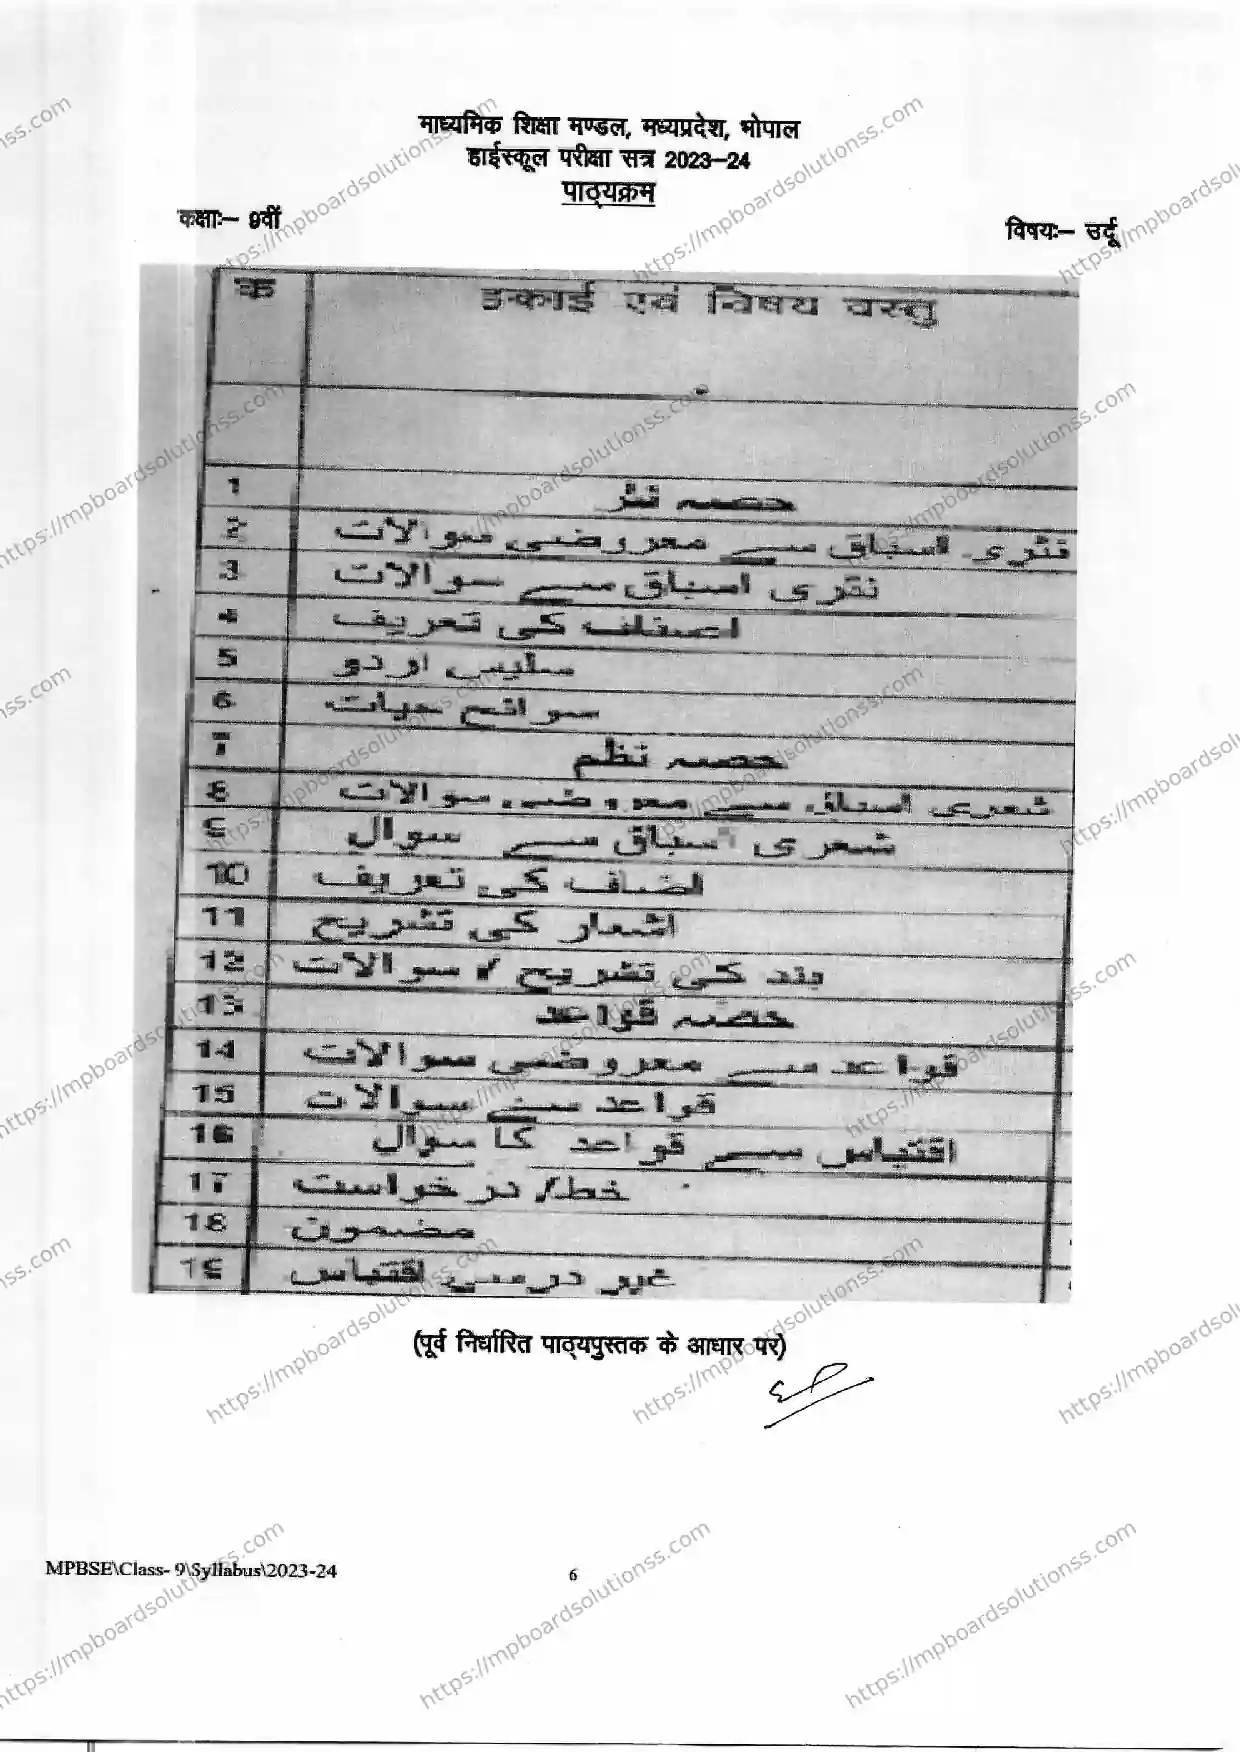 माध्यमिक शिक्षा मण्डल, मध्यप्रदेश, भोपाल
हाईस्कूल परीक्षा सत्र 2023–24
पाठ्यक्रम
कक्षाः– 9वीं
विषयः– उर्दू
क इकाई एवं विषय वस्तु
1 حصہ نثر
2 نثری اسباق سے معروضی سوالات
3 نثری اسباق سے سوالات
4 اصناف کی تعریف
5 سلیس اردو
6 سوانح حیات
7 حصہ نظم
8 شعری اسباق سے معروضی سوالات
9 شعری اسباق سے سوال
10 اضاف کی تعریف
11 اشعار کی تشریح
12 بند کی تشریح / سوالات
13 حصہ قواعد
14 قواعد سے معروضی سوالات
15 قواعد سے سوالات
16 اقتباس سے قواعد کا سوال
17 خط/ درخواست
18 مضمون
19 غیر درسی اقتباس
(पूर्व निर्धारित पाठ्यपुस्तक के आधार पर)
MPBSE\Class- 9\Syllabus\2023-24
6
https://mpboardsolutionss.com